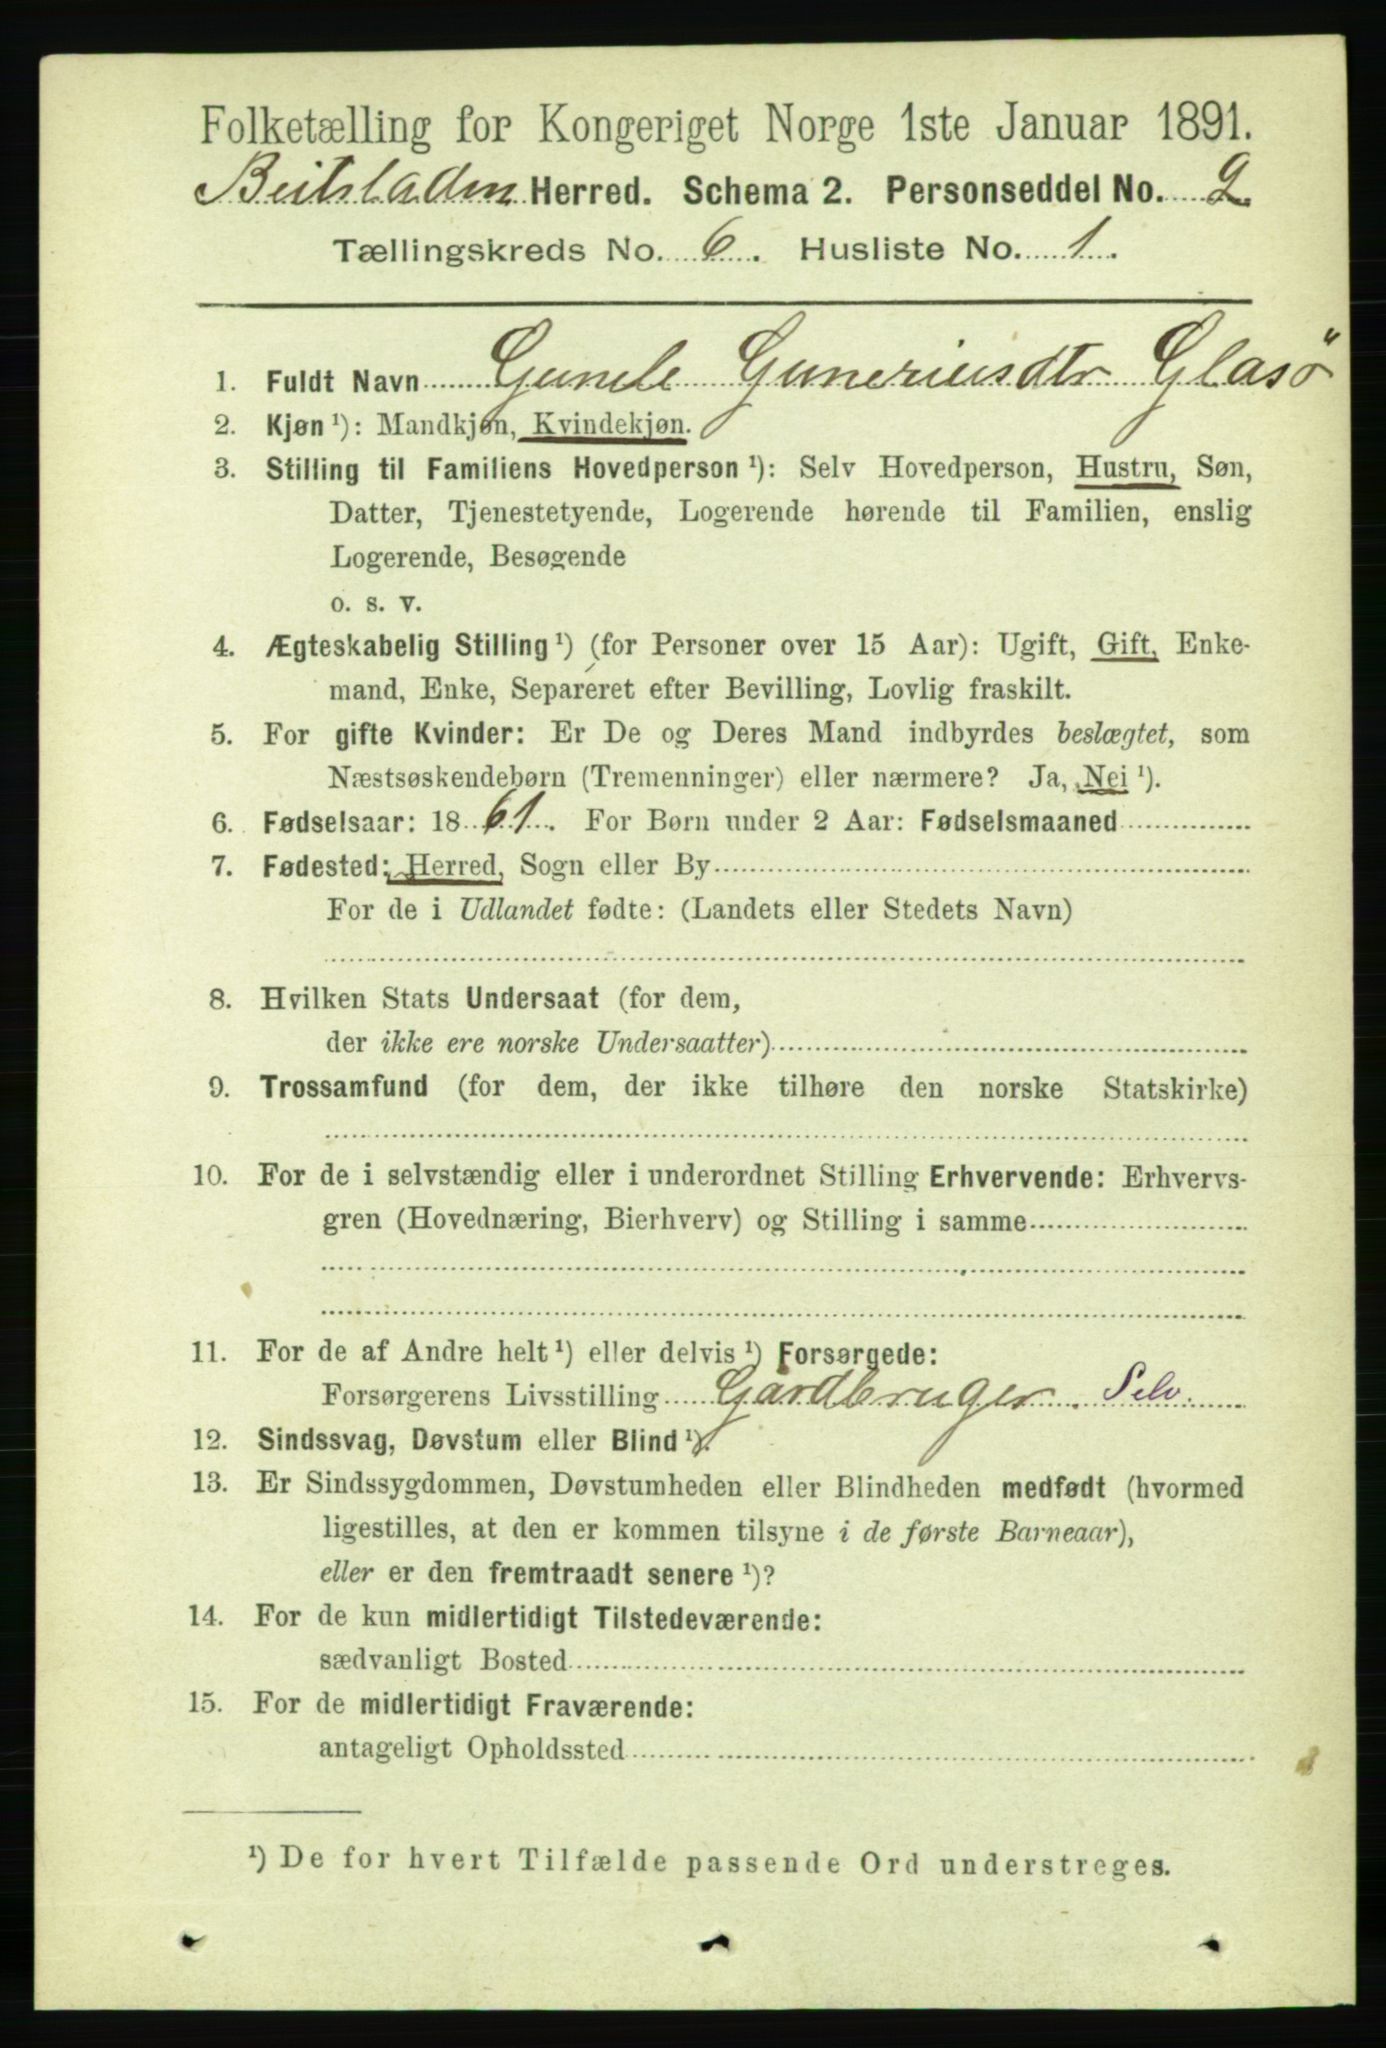 Folketælling for Kongeriget Norge 1ste Januar 1891.
Beitstaden Herred. Schema 2. Personseddel No. 2
Tællingskreds No. 6. Husliste No. 1.
1. Fuldt Navn Gunele Guneriusdtr Glasö
2. Kjøn ¹): Mandkjøn, Kvindekjøn.
3. Stilling til Familiens Hovedperson ¹): Selv Hovedperson, Hustru, Søn,
Datter, Tjenestetyende, Logerende hørende til Familien, enslig
Logerende, Besøgende
o. s. v.
4. Ægteskabelig Stilling ¹) (for Personer over 15 Aar): Ugift, Gift, Enke-
mand, Enke, Separeret efter Bevilling, Lovlig fraskilt.
5. For gifte Kvinder: Er De og Deres Mand indbyrdes beslægtet, som
Næstsøskendebørn (Tremenninger) eller nærmere? Ja, Nei ¹).
6. Fødselsaar: 1861. For Børn under 2 Aar: Fødselsmaaned
7. Fødested: Herred, Sogn eller By
For de i Udlandet fødte: (Landets eller Stedets Navn)
8. Hvilken Stats Undersaat (for dem,
der ikke ere norske Undersaatter)
9. Trossamfund (for dem, der ikke tilhøre den norske Statskirke)
10. For de i selvstændig eller i underordnet Stilling Erhvervende: Erhvervs-
gren (Hovednæring, Bierhverv) og Stilling i samme
11. For de af Andre helt ¹) eller delvis ¹) Forsørgede:
Forsørgerens Livsstilling Gårdbruger. Selv.
12. Sindssvag, Døvstum eller Blind ¹).
13. Er Sindssygdommen, Døvstumheden eller Blindheden medfødt (hvormed
ligestilles, at den er kommen tilsyne i de første Barneaar),
eller er den fremtraadt senere ¹)?
14. For de kun midlertidigt Tilstedeværende:
sædvanligt Bosted
15. For de midlertidigt Fraværende:
antageligt Opholdssted
¹) De for hvert Tilfælde passende Ord understreges.